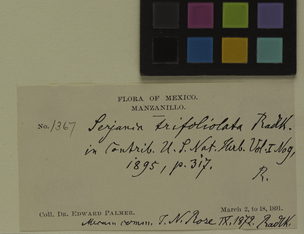 FLORA OF MEXICO.
MANZANILLO.
No. 1367
Serjania trifoliolata Radlk.
in Contrib. U. S. Nat. Herb. Vol. I No 9,
1895, p. 317.
R.
Coll. Dr. Edward Palmer. March 2, to 18, 1891.
J. N. Rose Radlk.